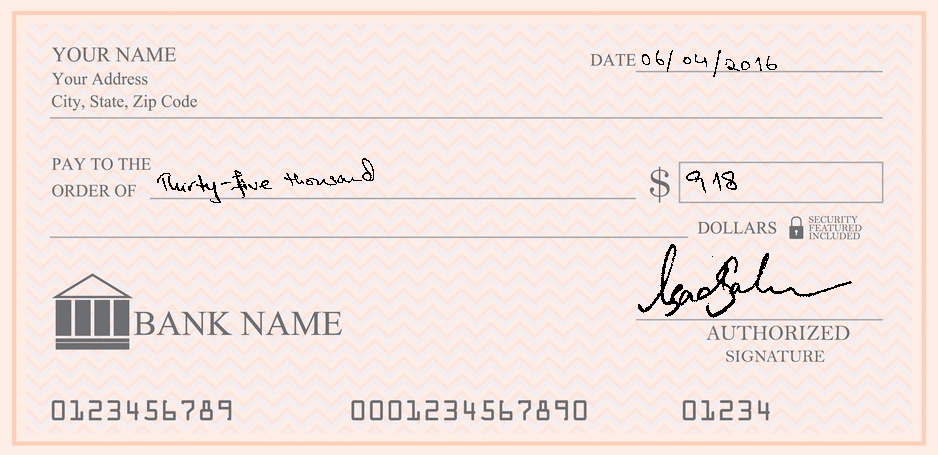 YOUR NAME
Your Address
City, State, Zip Code
DATE 06/04/2016
PAY TO THE
ORDER OF Thirty-five thousand
$ 918
DOLLARS
SECURITY
FEATURED
INCLUDED
BANK NAME
AUTHORIZED
SIGNATURE
0123456789 0001234567890 01234